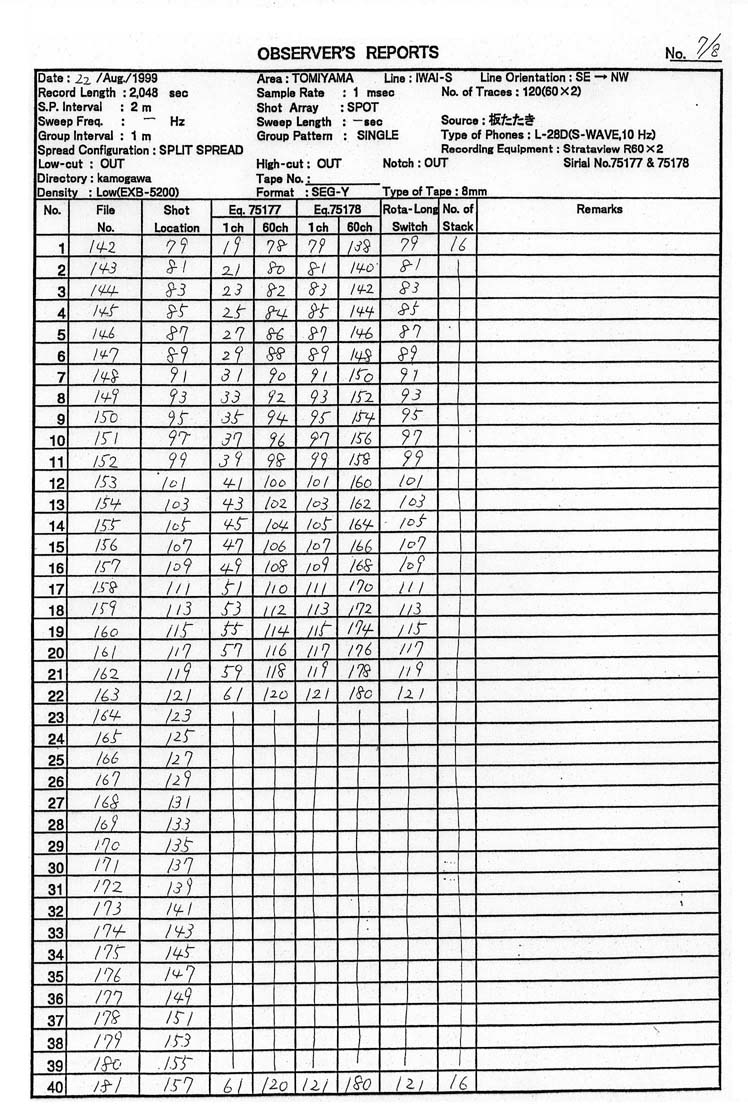 OBSERVER'S REPORTS No. 7/8
Date : 22 /Aug./1999 Area : TOMIYAMA Line : IWAI-S Line Orientation : SE → NW
Record Length : 2,048 sec Sample Rate : 1 msec No. of Traces : 120(60×2)
S.P. Interval : 2 m Shot Array : SPOT
Sweep Freq. : — Hz Sweep Length : —sec Source : 板たたき
Group Interval : 1 m Group Pattern : SINGLE Type of Phones : L-28D(S-WAVE,10 Hz)
Spread Configuration : SPLIT SPREAD Recording Equipment : Strataview R60×2
Low-cut : OUT High-cut : OUT Notch : OUT Sirial No.75177 & 75178
Directory : kamogawa Tape No. :
Density : Low(EXB-5200) Format : SEG-Y Type of Tape : 8mm
No. File Shot Eq. 75177 Eq.75178 Rota-Long No. of Remarks
No. Location 1ch 60ch 1ch 60ch Switch Stack
1 142 79 19 78 79 138 79 16
2 143 81 21 80 81 140 81
3 144 83 23 82 83 142 83
4 145 85 25 84 85 144 85
5 146 87 27 86 87 146 87
6 147 89 29 88 89 148 89
7 148 91 31 90 91 150 91
8 149 93 33 92 93 152 93
9 150 95 35 94 95 154 95
10 151 97 37 96 97 156 97
11 152 99 39 98 99 158 99
12 153 101 41 100 101 160 101
13 154 103 43 102 103 162 103
14 155 105 45 104 105 164 105
15 156 107 47 106 107 166 107
16 157 109 49 108 109 168 109
17 158 111 51 110 111 170 111
18 159 113 53 112 113 172 113
19 160 115 55 114 115 174 115
20 161 117 57 116 117 176 117
21 162 119 59 118 119 178 119
22 163 121 61 120 121 180 121
23 164 123
24 165 125
25 166 127
26 167 129
27 168 131
28 169 133
29 170 135
30 171 137
31 172 139
32 173 141
33 174 143
34 175 145
35 176 147
36 177 149
37 178 151
38 179 153
39 180 155
40 181 157 61 120 121 180 121 16